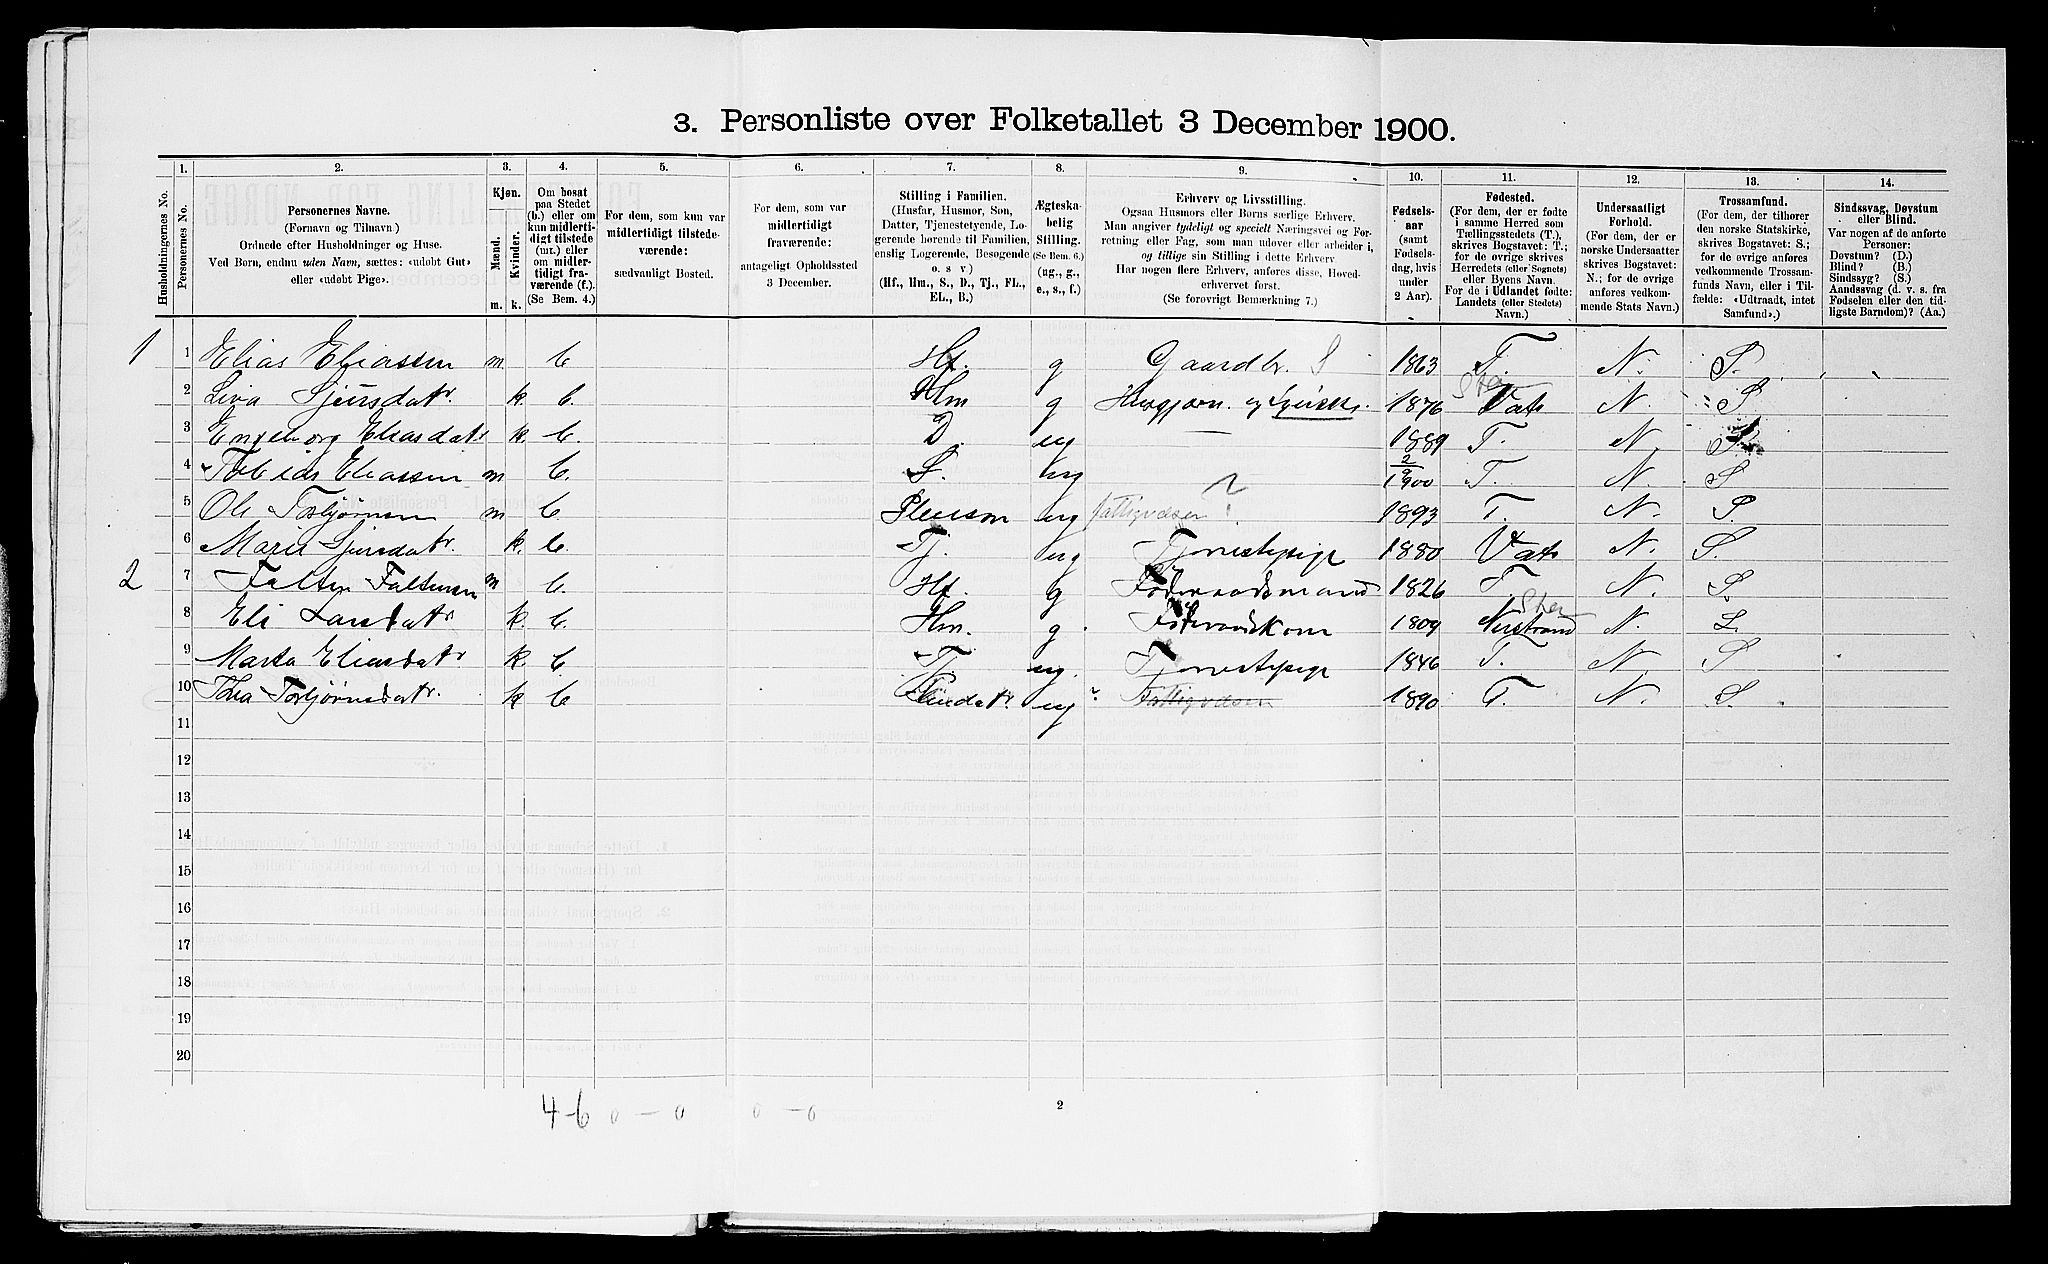 3. Personliste over Folketallet 3 December 1900.
Husholdningernes No.
1.
Personernes No.
2.
Personernes Navne.
(Fornavn og Tilnavn)
Ordnede efter Husholdninger og Huse.
Ved Børn, endnu uden Navn, sættes: «udøbt Gut»
eller «udøbt Pige».
3.
Kjøn.
Mænd.
Kvinder.
m. k.
4.
Om bosat
paa Stedet
(b.) eller om
kun midlerti-
digt tilstede
(mt.) eller
om midler-
tidigt fra-
værende (f.).
(Se Bem. 4.)
5.
For dem, som kun var
midlertidigt tilstede-
værende:
sædvanligt Bosted.
6.
For dem, som var
midlertidigt
fraværende:
antageligt Opholdssted
3 December.
7.
Stilling i Familien.
(Husfar, Husmor, Søn,
Datter, Tjenestetyende, Lo-
gerende hørende til Familien,
enslig Logerende, Besøgende
o. s. v.)
(Hf., Hm., S., D., Tj., FL.,
EL., B.)
8.
Ægteska-
belig
Stilling.
(Se Bem. 6.)
(ug., g.,
e., s., f.)
9.
Erhverv og Livsstilling.
Ogsaa Husmors eller Børns særlige Erhverv.
Man angiver tydeligt og specielt Næringsvei og For-
retning eller Fag, som man udøver eller arbeider i,
og tillige sin Stilling i dette Erhverv.
Har nogen flere Erhverv, anføres disse, Hoved-
erhvervet først.
(Se forøvrigt Bemærkning 7.)
10.
Fødsels-
aar
(samt
Fødsels-
dag, hvis
under
2 Aar).
11.
Fødested.
(For dem, der er fødte
i samme Herred som
Tællingsstedets (T.),
skrives Bogstavet: T.;
for de øvrige skrives
Herredets (eller Sognets)
eller Byens Navn.
For de i Udlandet fødte:
Landets (eller Stedets)
Navn.)
12.
Undersaatligt
Forhold.
(For dem, der er
norske Undersaatter
skrives Bogstavet:
N.; for de øvrige
anføres vedkom-
mende Stats Navn.)
13.
Trossamfund.
(For dem, der tilhører
den norske Statskirke,
skrives Bogstavet: S.;
for de øvrige anføres
vedkommende Trossam-
funds Navn, eller i Til-
fælde: «Udtraadt, intet
Samfund».)
14.
Sindssvag, Døvstum
eller Blind.
Var nogen af de anførte
Personer:
Døvstum? (D.)
Blind? (B.)
Sindssyg? (S.)
Aandssvag (d. v. s. fra
Fødselen eller den tid-
ligste Barndom)? (Aa.)
1 1 Elias Eliassen m b Hf. g Gaardbr. S 1863 T. N. S.
2 Liva Sjursdatr. k. b. Hm g Husgjern. og 1876 Vats N. S
3 Engeborg Eliasdatr k. b. D. ug — 1889 T. N. S.
4 Tobias Eliassen m b. S. ug 2/9 1900 T. N. S
5 Ole Torbjørnsen m b. Pleiesøn ug fattigvæsen ? 1893 T. N. S.
6 Maria Sjursdatr. k. b. Tj. ug Tjenestepige 1880 Vats N. S.
2 7 Falten Faltensen m b. Hf. g Føderaadsmand 1826 T. N. S.
8 Eli Larsdatr k. b. Hm. g. Føderaadskone 1809 Nerstrand N. S.
9 Marta Eliasdatr k. b. Tj. ug. Tjenestepige 1846 T. N S
10 Thea Torbjørnsdatr. k b Pleiedatr. ug ? Fattigvæsen 1890 T. N. S.
11
12
13
14
15
16
17
18
19
20
4-6 0-0 0-0
2